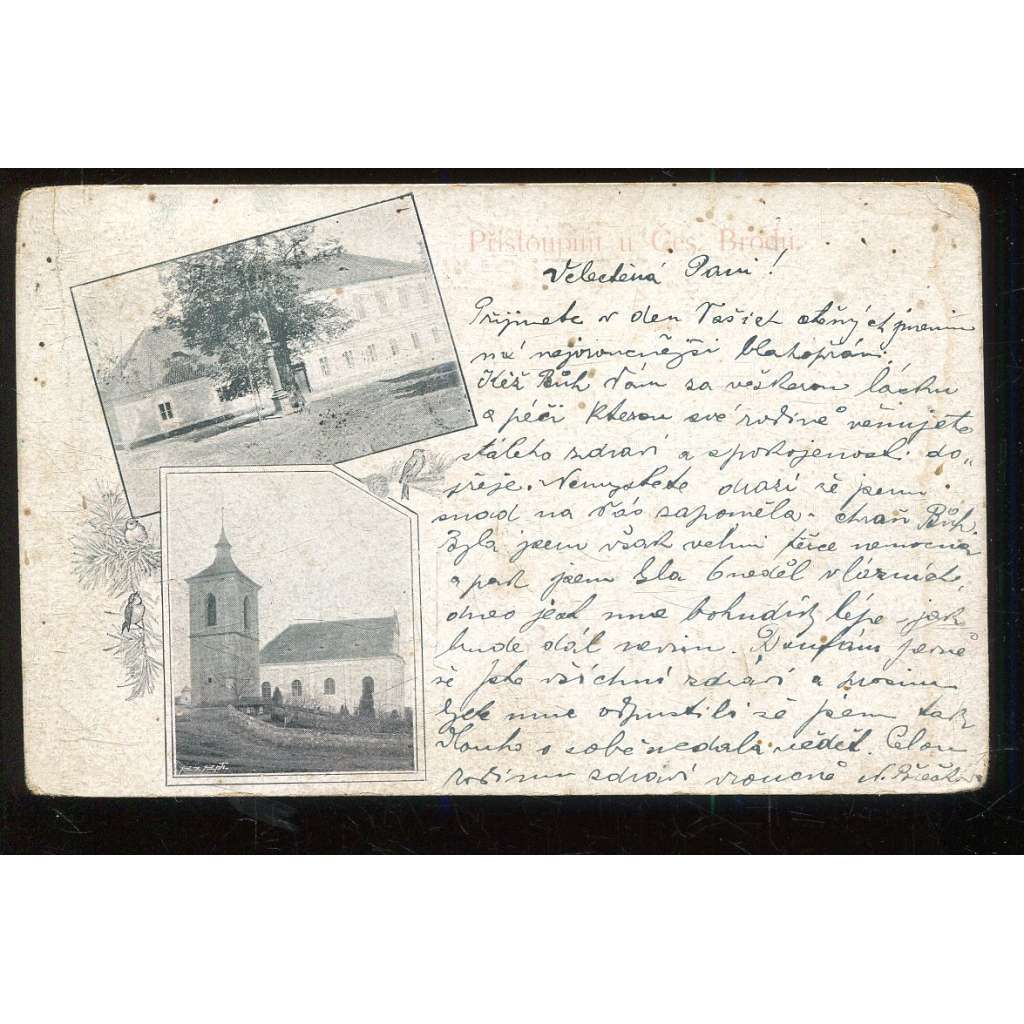 Přistoupim u Čes. Brodu.
Velectěná Paní!
Přijmete v den Vašich ctěných jmenin
mé nejvroucnější blahopřání.
Kéž Bůh Vám za veškerou lásku
a péči kterou své rodině věnujete
stálého zdraví a spokojenosti do„
přeje. Nemyslete drazí že jsem
snad na Vás zapoměla - chraň Bůh.
Byla jsem však velmi těžce nemocná
a pak jsem byla 6 neděl v lázních,
dnes jest mne bohudík lépe - jak
bude dál nevím. Doufám pevně
že jste všichni zdrávi a prosím
by mne odpustili že jsem tak
dlouho o sobě nedala vědět. Celou
rodinu zdraví vroucně